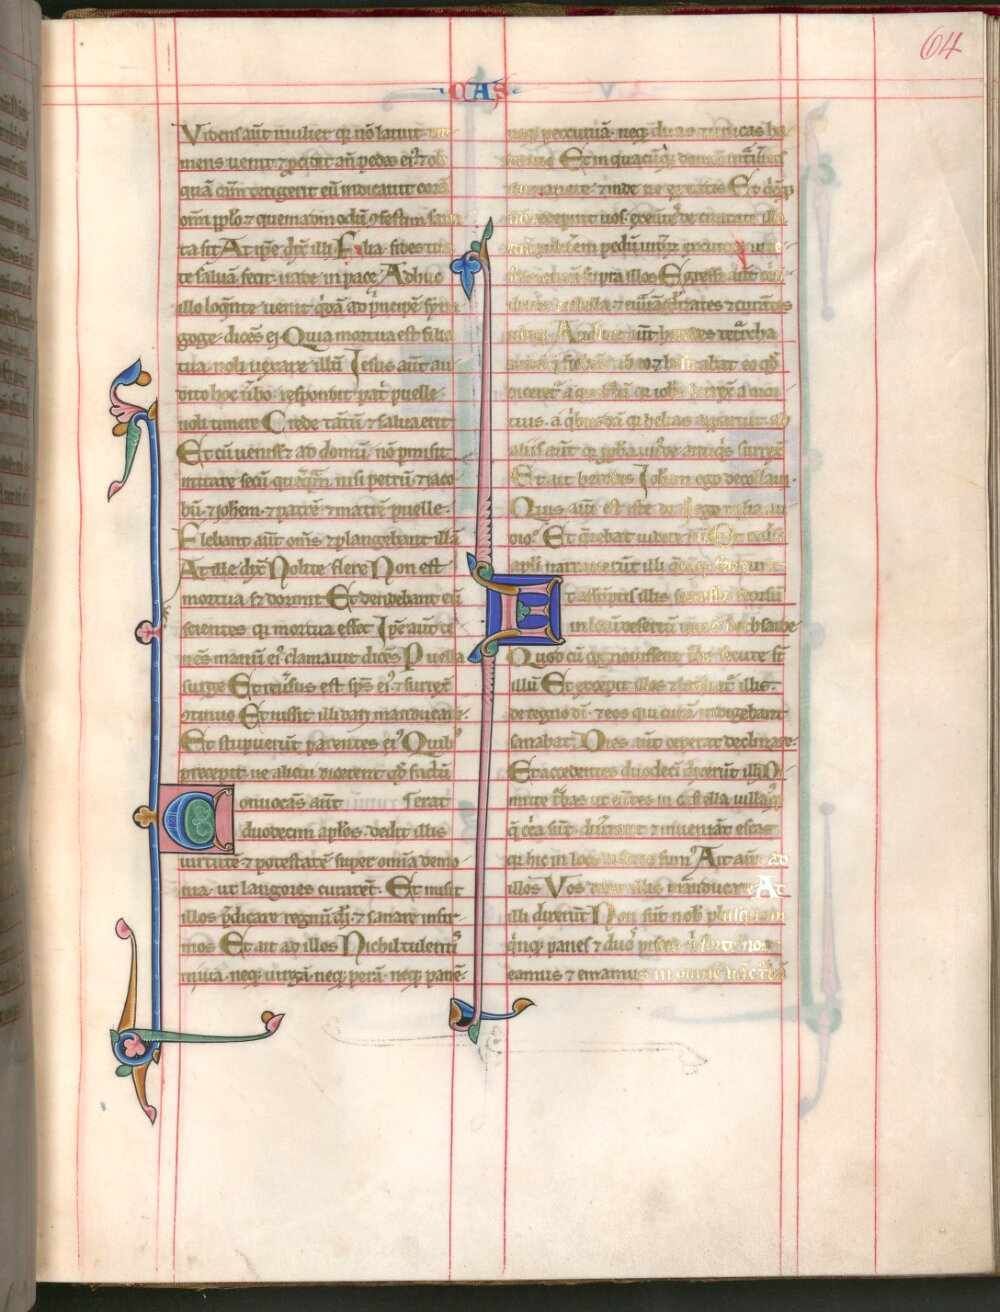 64
CAS
Videns aūt mulier qꝫ nō latuit tre
mens uenit ⁊ ꝓcidit añ pedes eiꝰ ⁊ ob
quā cām tetigerit eū indicauit corā
om̄i pplo ⁊ quemadmodū ꝯfestim sana
ta sit At ipe dix̄ illi Filia fides tua
te saluā fecit uade in pace Adhuc
illo loq̄nte uenit q̄dā ad p̄ncipē syna
goge dicēs ei Quia mortua est filia
tua noli uexare illū Jesus aūt au
dito hoc ūbo respondit pat̄ puelle
noli timere Crede tātū ⁊ salua erit
Et cū uenisꝫ ad domū nō pmisit
intrare secū quēq̄m nisi petrū ⁊ iaco
bū ⁊ joh̄em ⁊ patrē ⁊ matrē puelle
Flebant aūt om̄s ⁊ plangebant illā
At ille dix̄ Nolite flere Non est
mortua sꝫ dormit Et deridebant eū
scientes qꝫ mortua esset Ipe aūt te
nēs manū eiꝰ clamauit dicēs Puella
surge Et reūsus est sp̄s eiꝰ ⁊ surrex̄
ꝯtinuo Et iussit illi dari manducare
Et stupuerūt parentes eiꝰ Quibꝰ
precepit ne alicui dicerent qd̄ factū
Conuocatis aūt erat
duodecim aplos dedit illis
uirtutē ⁊ potestatē super omīa demo
nia ut langores curarēt Et misit
illos p̄dicare regnū di ⁊ sanare infir
mos Et ait ad illos Nichil tuleritꝭ
in uia neqꝫ uirgā neqꝫ perā neqꝫ panē
neqꝫ peccuniā neqꝫ duas tunicas ha
Et in quācūqꝫ domū int̄ueritꝭ
manete ⁊ inde ne exeatis Et
nō receperit uos exeūtes de ciuitate illa
pedū uror̄ excutite in te
supra illos Egressi aūt
castella euāḡlizates ⁊ curātes
Audiuit aūt herodes tetrarcha
ab eo ⁊ hesitabat eo qd̄
diceret̄ a qbusdā qꝫ johs surrex̄ a mor
tuis a q̄busdā qꝫ helias apparuit ab
aliis aūt qꝫ ꝓph̄a unꝰ de antiqꝭ surrex̄
Et ait herodes Joh̄em ego decollaui
Quis aūt est iste de q̄ ego talia au
dio Et q̄rebat uidere eū Et reūsi
apl̄i narrauerūt illi
Et assūptis illis secessit seorsū
in locū desertū qui ē bethsaide
Quod cū cognouissent t̄be secute st̄
illū Et excepit illos ⁊ loq̄bat̄ illis
de regno di ⁊ eos qui cura indigebant
sanabat Dies aūt ceperat declinare
Et accedentes duodeci dixerūt illi Di
mitte t̄bas ut eūtes in castella uillasqꝫ
q̄ circa sūt diūtant ⁊ inueniāt escas
qꝫ hic in loco deserto sumꝰ Ait aūt ad
illos Vos date illis manducare At
illi dixerūt Non sūt nob̄ plusquam
q̄nqꝫ panes ⁊ duo pisces n̄ forte nos
eamus ⁊ emamus in omnē hāc t̄bā